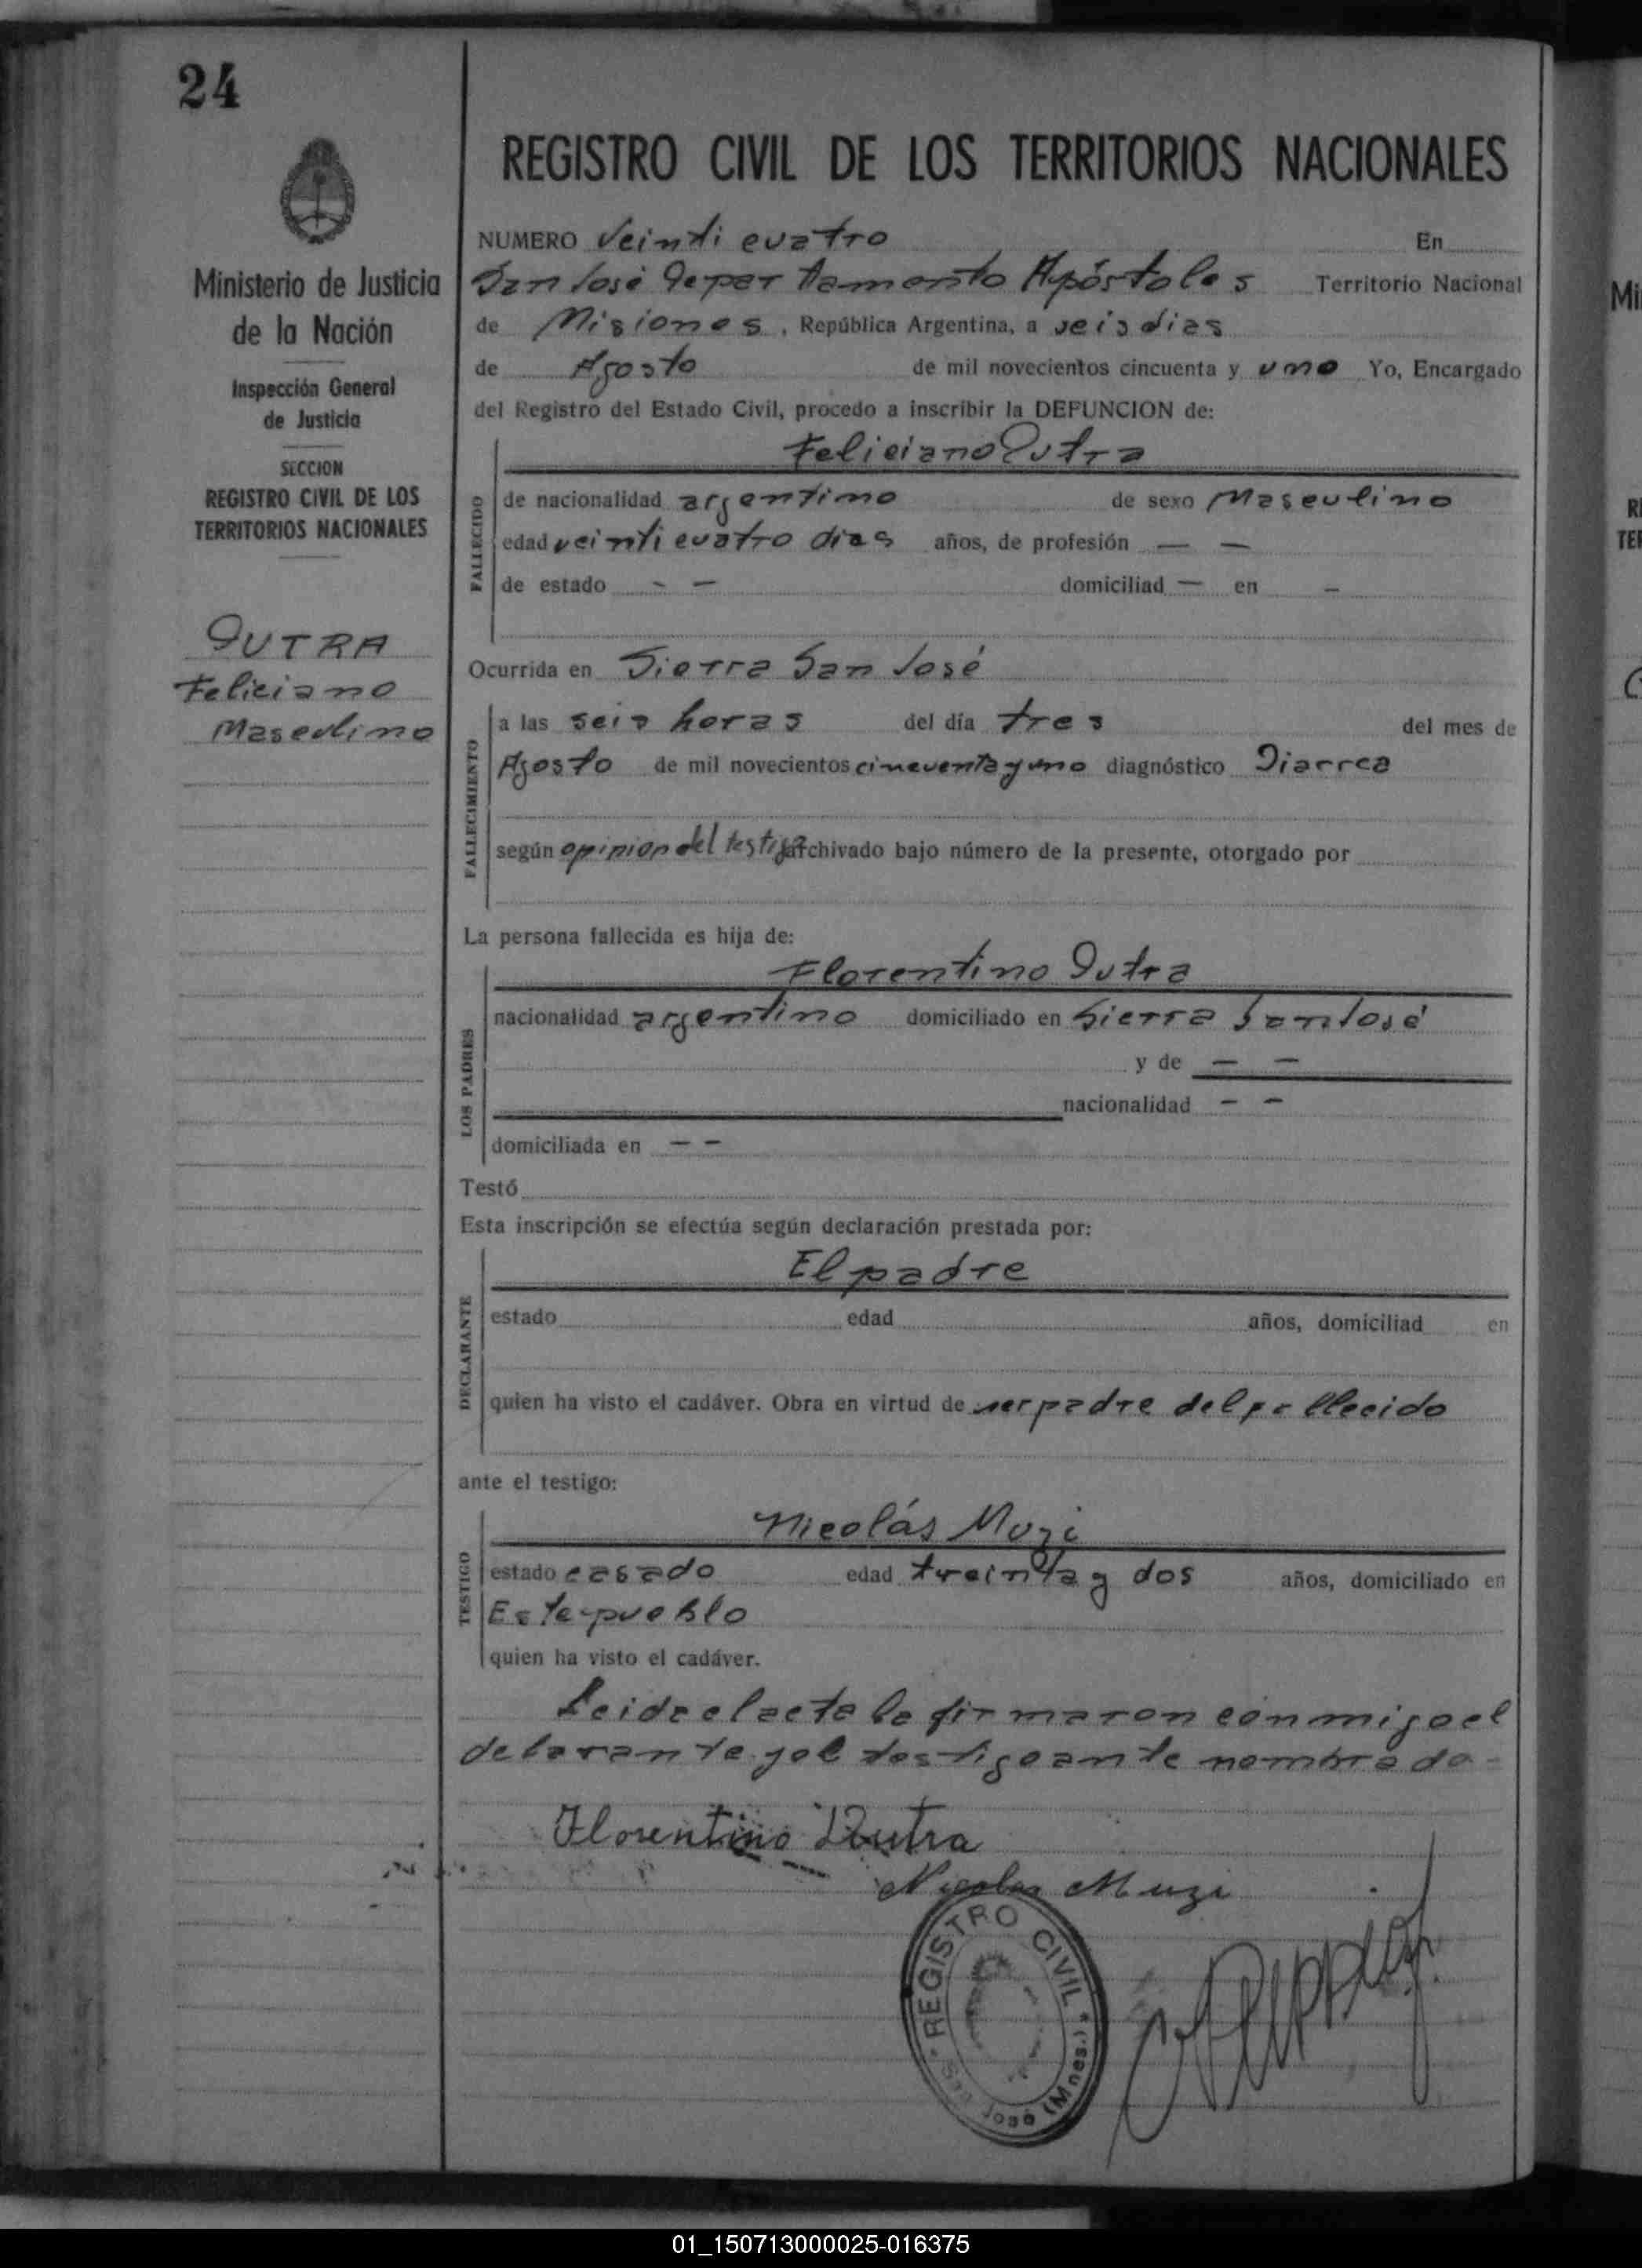 24
Ministerio de Justicia
de la Nación
Inspección General
de Justicia
SECCION
REGISTRO CIVIL DE LOS
TERRITORIOS NACIONALES
DUTRA
Feliciano
Masculino
REGISTRO CIVIL DE LOS TERRITORIOS NACIONALES
NUMERO Veinti cuatro En
San José Departamento Apóstoles Territorio Nacional
de Misiones, República Argentina, a seis dias
de Agosto de mil novecientos cincuenta y uno Yo, Encargado
del Registro del Estado Civil, procedo a inscribir la DEFUNCION de:
Feliciano Dutra
FALLECIDO
de nacionalidad argentino de sexo Masculino
edad veinti cuatro dias años, de profesión — —
de estado - - domiciliad — en -
Ocurrida en Sierra San José
FALLECIMIENTO
a las seis horas del día tres del mes de
Agosto de mil novecientos cincuenta y uno diagnóstico Diarrea
según opinion del testigo archivado bajo número de la presente, otorgado por
La persona fallecida es hija de:
Florentino Dutra
LOS PADRES
nacionalidad argentino domiciliado en Sierra San José
y de — —
nacionalidad - -
domiciliada en - -
Testó
Esta inscripción se efectúa según declaración prestada por:
El padre
DECLARANTE
estado edad años, domiciliad en
quien ha visto el cadáver. Obra en virtud de ser padre del fallecido
ante el testigo:
Nicolás Muzi
TESTIGO
estado casado edad treinta y dos años, domiciliado en
Este pueblo
quien ha visto el cadáver.
Leida el acta la firmaron conmigo el
delarante y el testigo ante nombrado-
Florentino Dutra
Nicolas Muzi
REGISTRO CIVIL
San José (Mnes.)
Mi
01_150713000025-016375